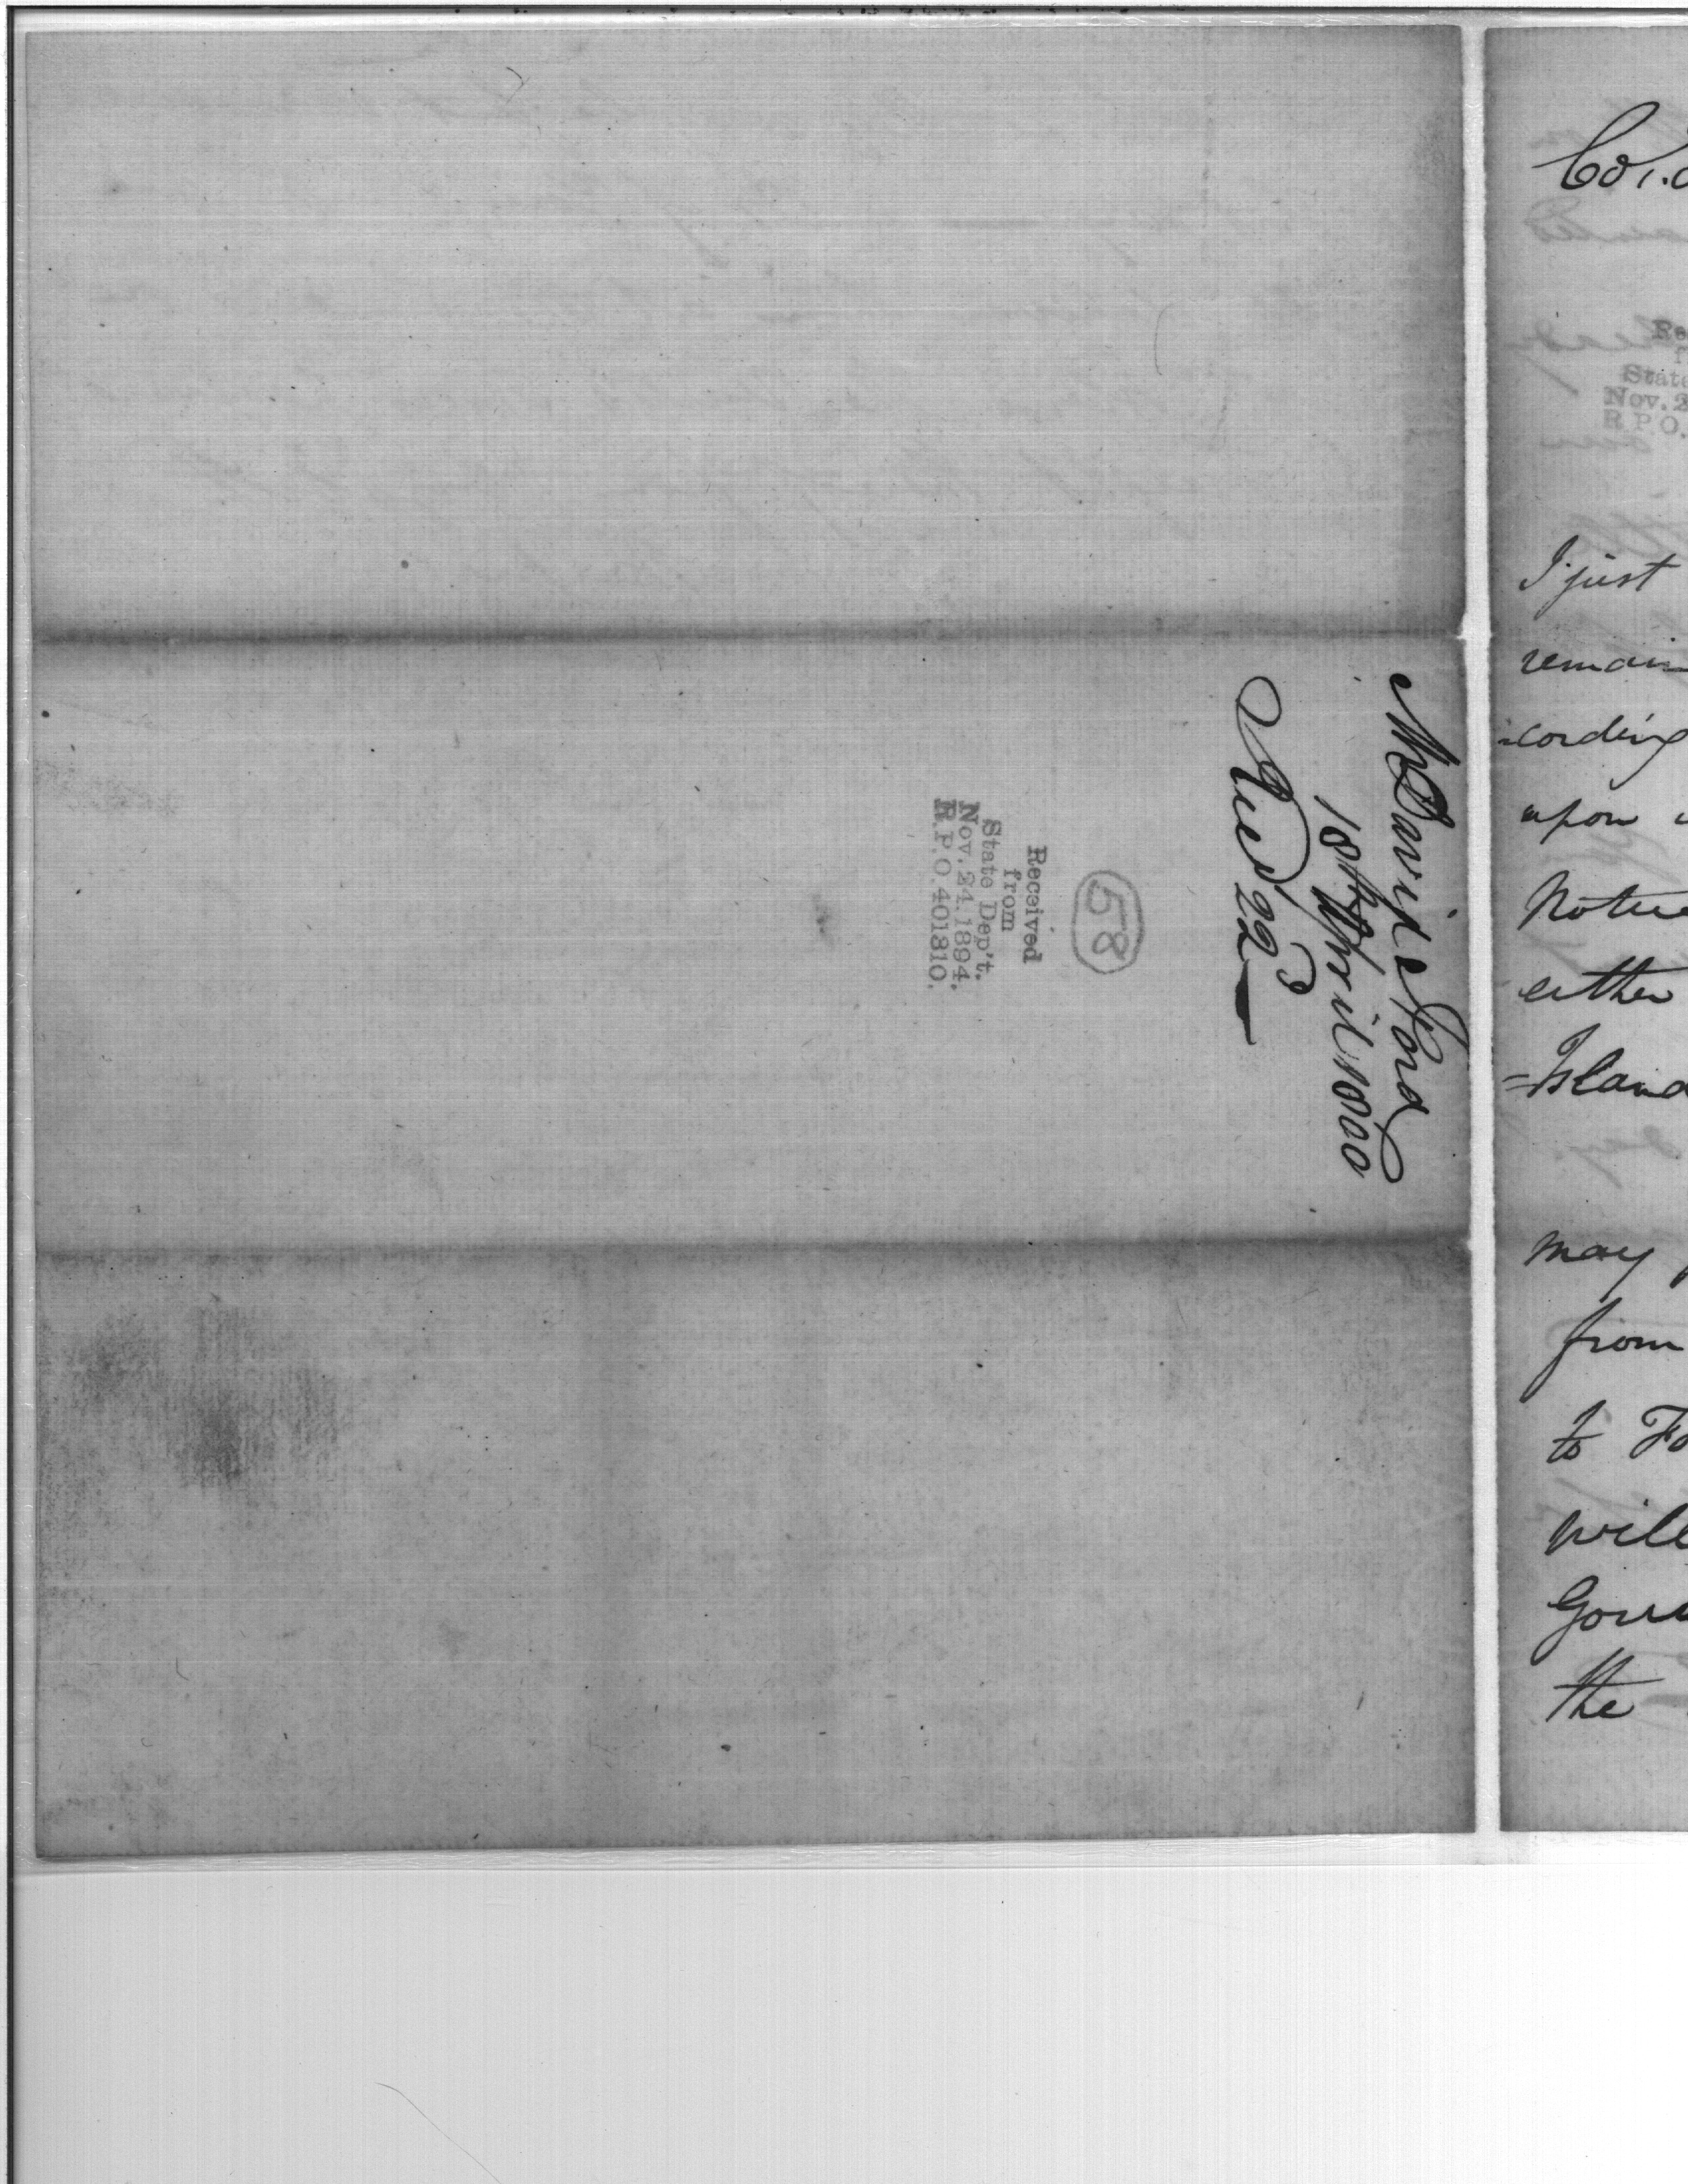 Mr David Ford
18th April 1800
Recd 22d
58
Received
from
State Dep't.
Nov. 24. 1894.
R.P.O. 401310.
Co
State
Nov. 2
R.P.O.
I just
remain
cording
upon
Notice
either
=Island
may
from
to
will
the